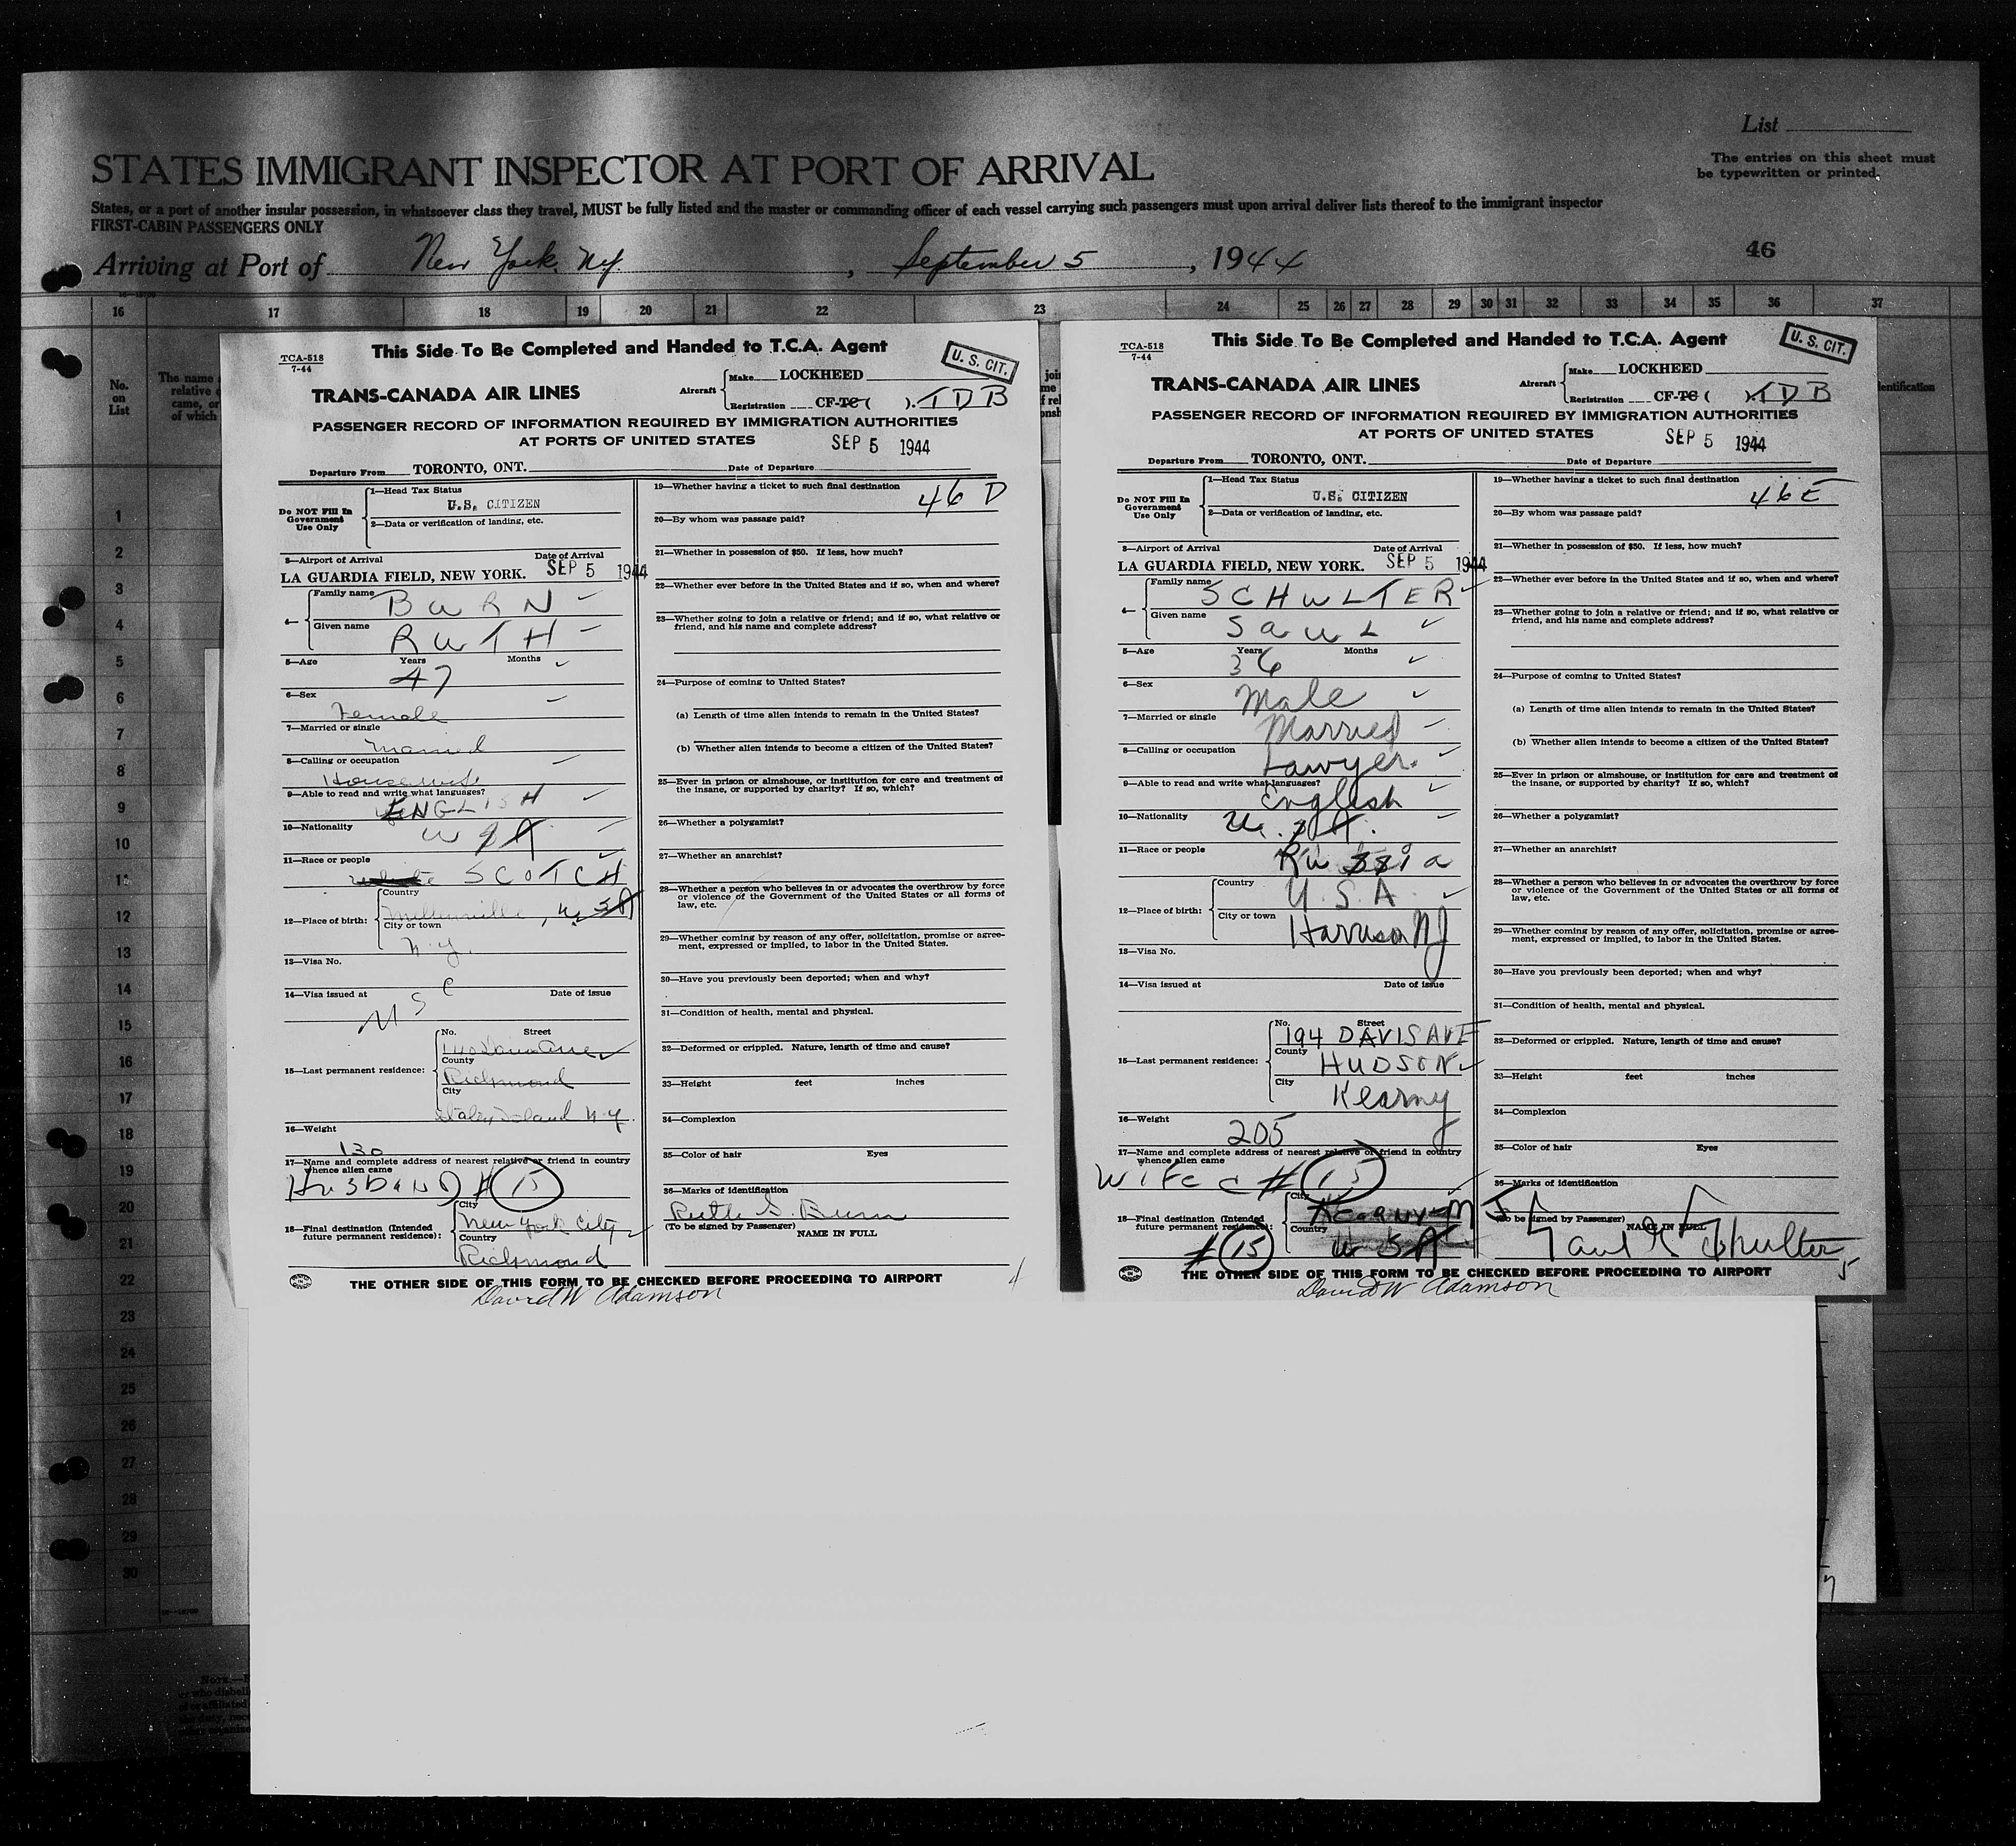 List
STATES IMMIGRANT INSPECTOR AT PORT OF ARRIVAL
The entries on this sheet must
be typewritten or printed.
States, or a port of another insular possession, in whatsoever class they travel, MUST be fully listed and the master or commanding officer of each vessel carrying such passengers must upon arrival deliver lists thereof to the immigrant inspector
FIRST-CABIN PASSENGERS ONLY
Arriving at Port of New York, N.Y., September 5, 1944
46
16 17 18 19 20 21 22 23 24 25 26 27 28 29 30 31 32 33 34 35 36 37
No.
on
List
The name
relative
came, or
of which
1
2
3
4
5
6
7
8
9
10
11
12
13
14
15
16
17
18
19
20
21
22
23
24
25
26
27
28
29
30
This Side To Be Completed and Handed to T.C.A. Agent
TCA-518
7-44
U. S. CIT.
TRANS-CANADA AIR LINES
Aircraft
Make LOCKHEED
Registration CF-TC ( ). TDB
PASSENGER RECORD OF INFORMATION REQUIRED BY IMMIGRATION AUTHORITIES
AT PORTS OF UNITED STATES
SEP 5 1944
Departure From TORONTO, ONT. Date of Departure
Do NOT Fill In
Government
Use Only
1—Head Tax Status
U.S. CITIZEN
2—Data or verification of landing, etc.
3—Airport of Arrival Date of Arrival
LA GUARDIA FIELD, NEW YORK. SEP 5 1944
4—
Family name BURN
Given name RUTH
5—Age Years Months
47
6—Sex
Female
7—Married or single
Married
8—Calling or occupation
Housewife
9—Able to read and write what languages?
ENGLISH
10—Nationality
USA
11—Race or people
SCOTCH
12—Place of birth:
Country
USA
City or town
N.Y.
13—Visa No.
14—Visa issued at Date of issue
U S C
15—Last permanent residence:
No. Street
County
Richmond
City
Staten Island N.Y.
16—Weight
130
17—Name and complete address of nearest relative or friend in country
whence alien came
HUSBAND # 15
18—Final destination (Intended
future permanent residence):
City
New York City
Country
Richmond
19—Whether having a ticket to such final destination
46 D
20—By whom was passage paid?
21—Whether in possession of $50. If less, how much?
22—Whether ever before in the United States and if so, when and where?
23—Whether going to join a relative or friend; and if so, what relative or
friend, and his name and complete address?
24—Purpose of coming to United States?
(a) Length of time alien intends to remain in the United States?
(b) Whether alien intends to become a citizen of the United States?
25—Ever in prison or almshouse, or institution for care and treatment of
the insane, or supported by charity? If so, which?
26—Whether a polygamist?
27—Whether an anarchist?
28—Whether a person who believes in or advocates the overthrow by force
or violence of the Government of the United States or all forms of
law, etc.
29—Whether coming by reason of any offer, solicitation, promise or agree-
ment, expressed or implied, to labor in the United States.
30—Have you previously been deported; when and why?
31—Condition of health, mental and physical.
32—Deformed or crippled. Nature, length of time and cause?
33—Height feet inches
34—Complexion
35—Color of hair Eyes
36—Marks of identification
Ruth S. Burn
(To be signed by Passenger)
NAME IN FULL
THE OTHER SIDE OF THIS FORM TO BE CHECKED BEFORE PROCEEDING TO AIRPORT
David W Adamson
4
This Side To Be Completed and Handed to T.C.A. Agent
TCA-518
7-44
U. S. CIT.
TRANS-CANADA AIR LINES
Aircraft
Make LOCKHEED
Registration CF-TC ( ). TDB
PASSENGER RECORD OF INFORMATION REQUIRED BY IMMIGRATION AUTHORITIES
AT PORTS OF UNITED STATES
SEP 5 1944
Departure From TORONTO, ONT. Date of Departure
Do NOT Fill In
Government
Use Only
1—Head Tax Status
U.S. CITIZEN
2—Data or verification of landing, etc.
3—Airport of Arrival Date of Arrival
LA GUARDIA FIELD, NEW YORK. SEP 5 1944
4—
Family name SCHULTER
Given name SAUL
5—Age Years Months
36
6—Sex
Male
7—Married or single
Married
8—Calling or occupation
Lawyer.
9—Able to read and write what languages?
English
10—Nationality
U.S.A.
11—Race or people
Russia
12—Place of birth:
Country
U.S.A.
City or town
Harrison NJ
13—Visa No.
14—Visa issued at Date of issue
15—Last permanent residence:
No. Street
194 DAVIS AVE
County
HUDSON
City
Kearny
16—Weight
205
17—Name and complete address of nearest relative or friend in country
whence alien came
WIFE C # 15
18—Final destination (Intended
future permanent residence):
# 15
City
Kearny N J
Country
USA
19—Whether having a ticket to such final destination
46E
20—By whom was passage paid?
21—Whether in possession of $50. If less, how much?
22—Whether ever before in the United States and if so, when and where?
23—Whether going to join a relative or friend; and if so, what relative or
friend, and his name and complete address?
24—Purpose of coming to United States?
(a) Length of time alien intends to remain in the United States?
(b) Whether alien intends to become a citizen of the United States?
25—Ever in prison or almshouse, or institution for care and treatment of
the insane, or supported by charity? If so, which?
26—Whether a polygamist?
27—Whether an anarchist?
28—Whether a person who believes in or advocates the overthrow by force
or violence of the Government of the United States or all forms of
law, etc.
29—Whether coming by reason of any offer, solicitation, promise or agree-
ment, expressed or implied, to labor in the United States.
30—Have you previously been deported; when and why?
31—Condition of health, mental and physical.
32—Deformed or crippled. Nature, length of time and cause?
33—Height feet inches
34—Complexion
35—Color of hair Eyes
36—Marks of identification
(To be signed by Passenger)
NAME IN FULL
Saul Schulter
5
THE OTHER SIDE OF THIS FORM TO BE CHECKED BEFORE PROCEEDING TO AIRPORT
David W Adamson